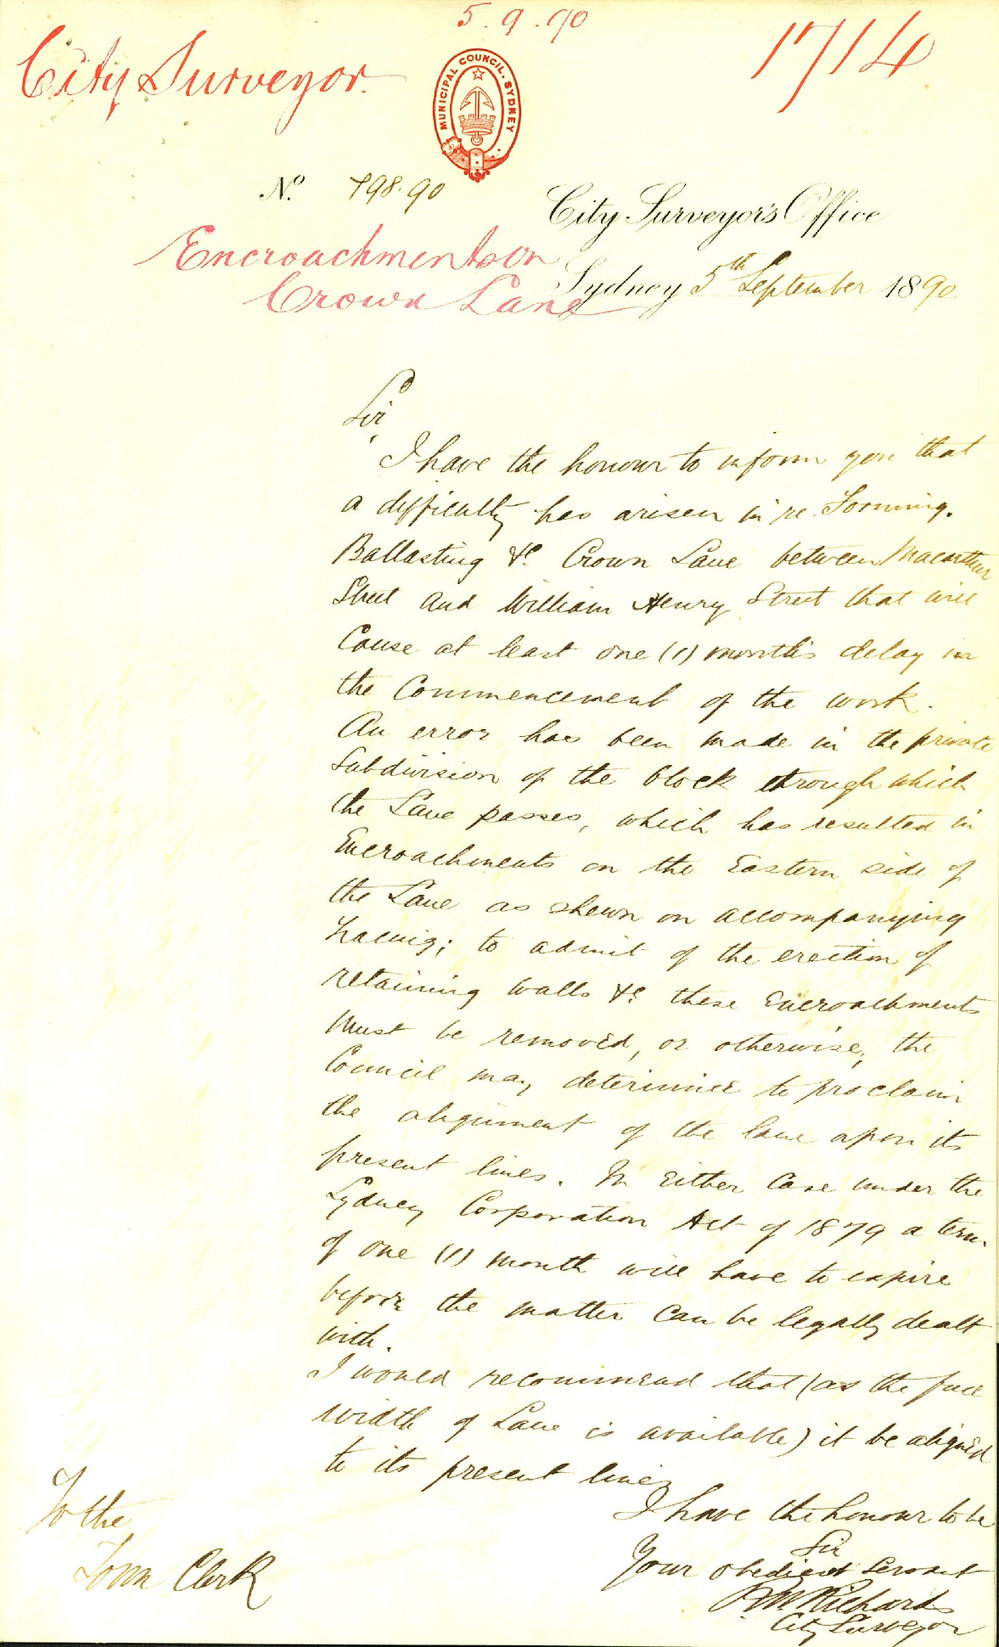 5.9.90
City Surveyor
1714
MUNICIPAL COUNCIL. SYDNEY
No. 798.90
City Surveyor's Office
Encroachments on
Crown Lane
Sydney 5th September 1890
Sir,
I have the honour to inform you that
a difficulty has arisen in re-forming.
Ballasting &c. Crown Lane between Macarthur
Street and William Henry Street that will
Cause at least one (1) month's delay in
the Commencement of the work.
An error has been made in the private
Subdivision of the block through which
the Lane passes, which has resulted in
Encroachments on the Eastern side of
the Lane as shewn on accompanying
tracing; to admit of the erection of
retaining walls &c. these Encroachments
Must be removed, or otherwise, the
Council may determine to proclaim
the alignment of the lane upon its
present lines. In Either Case under the
Sydney Corporation Act of 1879 a term
of one (1) month will have to expire
before the matter can be legally dealt
with.
I would recommend that (as the full
width of Lane is available) it be aligned
to its present lines
I have the honour to be
Sir
Your obedient Servant
R W Richards
City Surveyor
To the
Town Clerk